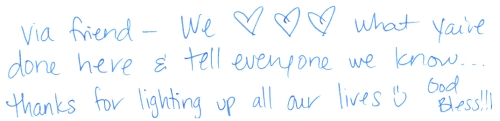 via friend – We ♡ ♡ ♡ what you've
done here & tell everyone we know...
thanks for lighting up all our lives ☺ God Bless!!!